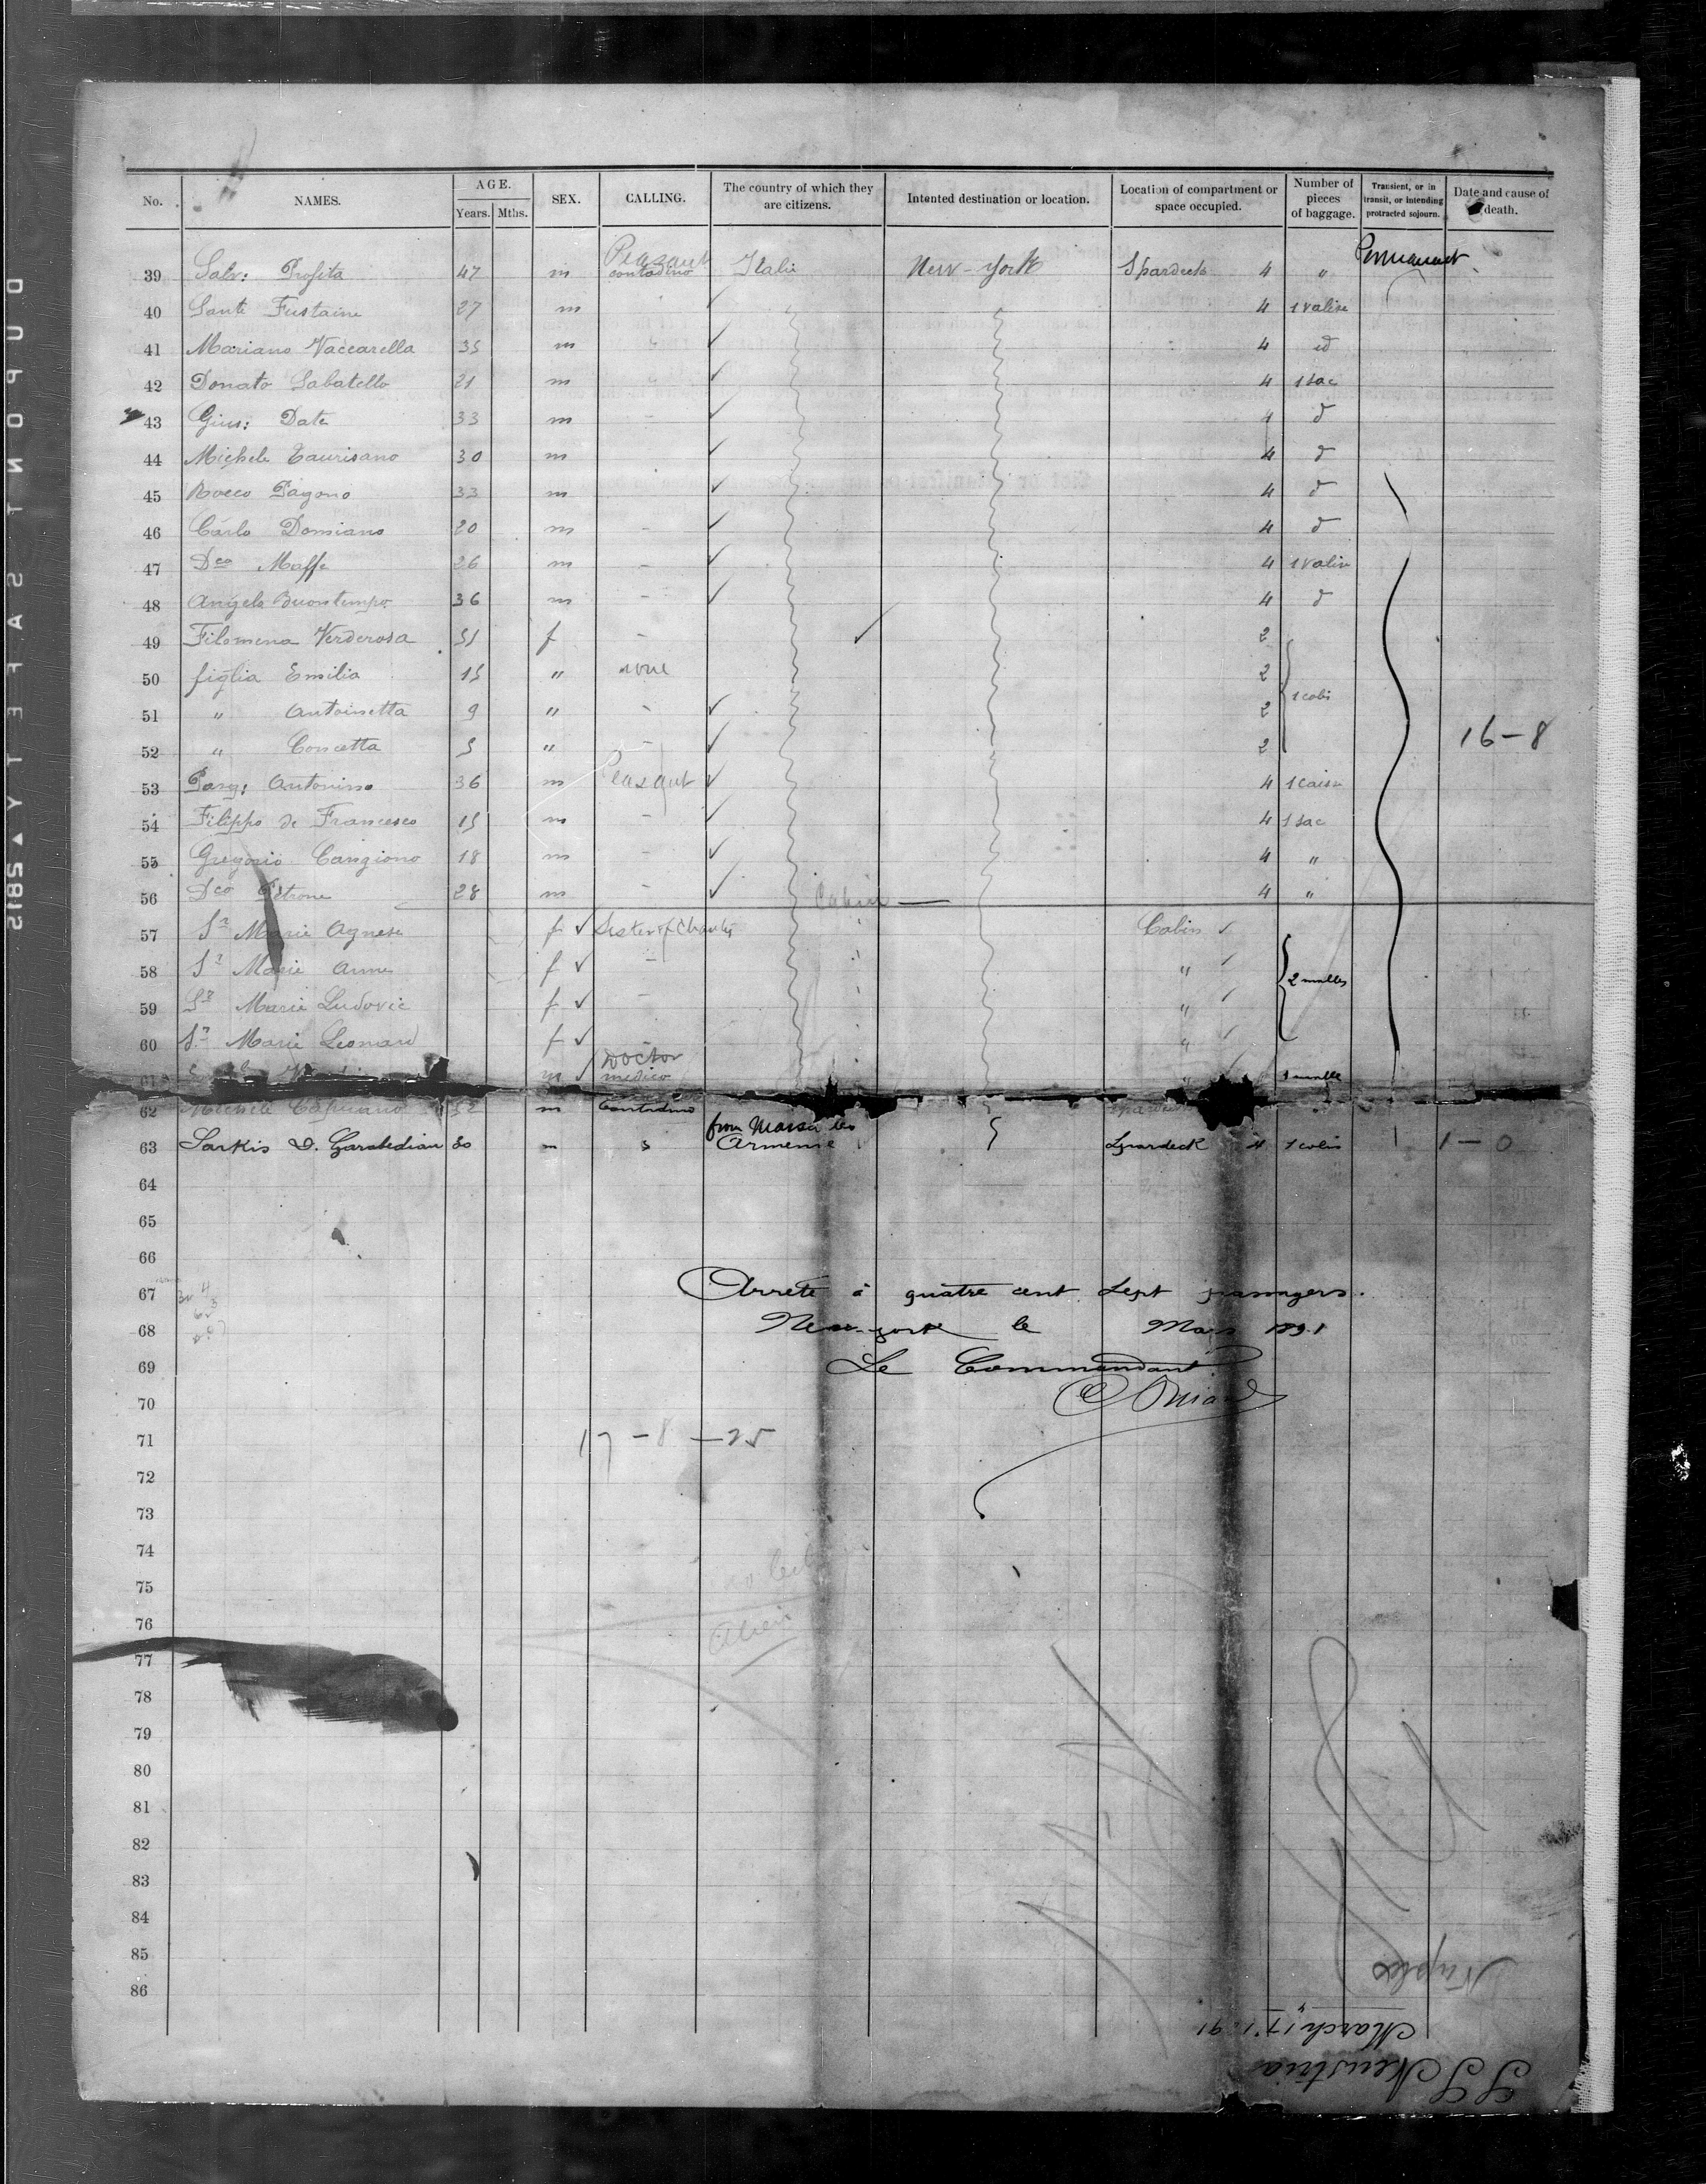 No. NAMES. AGE. Years. Mths. SEX. CALLING. The country of which they are citizens. Intented destination or location. Location of compartment or space occupied. Number of pieces of baggage. Transient, or in transit, or intending protracted sojourn. Date and cause of death.
Peasant Permanent
39 Salv: Profita 47 m contadino Italie New-York Spardeck 4 "
40 Sante Fustaine 27 m ✓ 4 1 valise
41 Mariano Vaccarella 35 m " ✓ 4 id
42 Donato Sabatello 21 m " ✓ 4 1 sac
43 Gius: Date 33 m - ✓ 4 d
44 Michele Taurisano 30 m ✓ 4 d
45 Rocco Pagono 33 m ✓ 4 d
46 Carlo Domiano 20 m - ✓ 4 d
47 Dco Maffe 26 m - ✓ 4 1 valise
48 Angelo Buontempo 36 m - ✓ 4 d
49 Filomena Verderosa 51 f - ✓ 2
50 figlia Emilia 15 " none 2
51 " Antoinetta 9 " - ✓ 2 1 colis
52 " Concetta 5 " - ✓ 2 16-8
53 Pasq: Antonino 36 m Peasant ✓ 4 1 caisse
54 Filippo de Francesco 15 m - ✓ 4 1 sac
55 Gregorio Cangiono 18 m - ✓ 4 "
56 Dco Petrone 28 m - ✓ 4 "
Cabin
57 Sr Marie Agnese f ✓ Sister of Charity Cabin ✓
58 Sr Marie Anne f ✓ - " ✓ 2 malles
59 Sr Marie Ludovic f ✓ - " ✓
60 Sr Marie Leonard f ✓ " ✓
Doctor
61 m ✓ medico " 1 malle
62 Michele Capuano 32 m Contadino
from Marseilles
63 Sarkis D. Garabedian 30 m Armenie Spardeck 4 1 colis 1-0
64
65
66
67 Arrêté à quatre cent sept passagers.
68 New-york le Mars 1891
69 Le Commandant
70
71 17-8-25
72
73
74
75
76 Alien
77
78
79
80
81
82
83
84
85
86
Naples
March 17 1891
SS Neustria
DUPONT SAFETY
2185